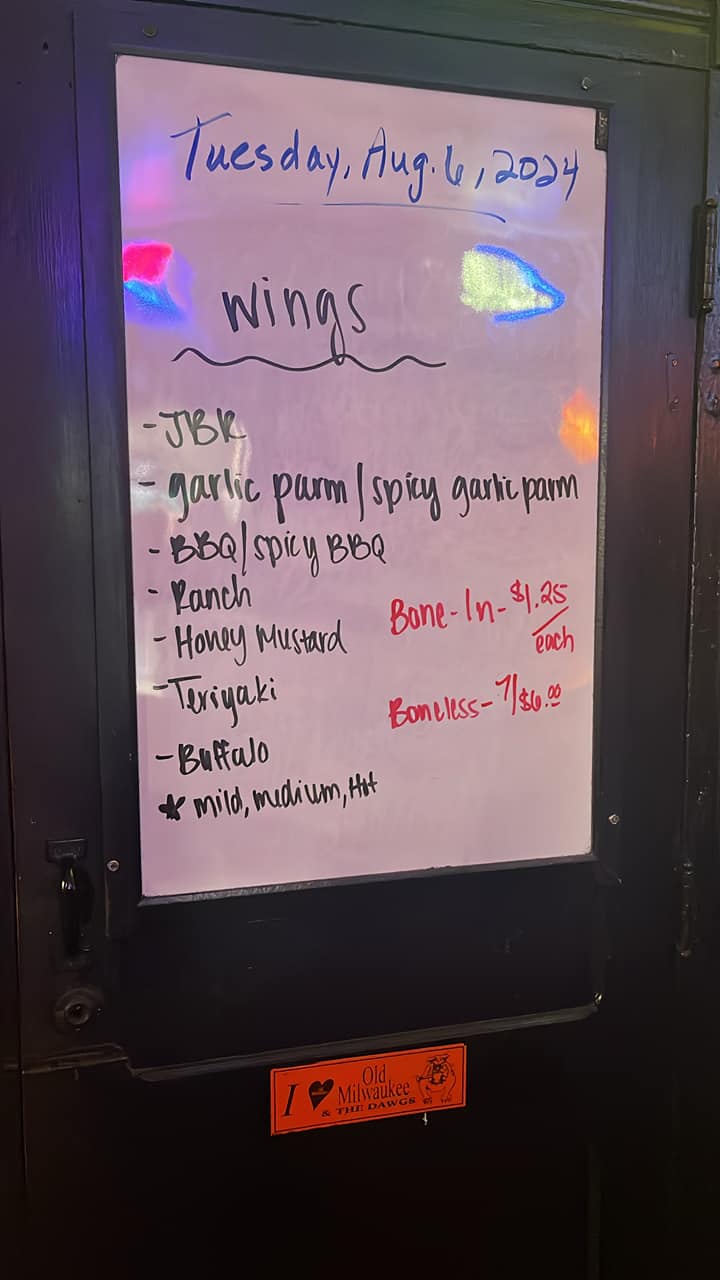 Tuesday, Aug. 6, 2024
Wings
- JBR
- garlic parm/spicy garlic parm
- BBQ/spicy BBQ
- Ranch
- Honey Mustard
- Teriyaki
- Buffalo
* mild, medium, Hot
Bone-In- $1.25/each
Boneless- 7/$6.00
I ♥ Old Milwaukee
& THE DAWGS